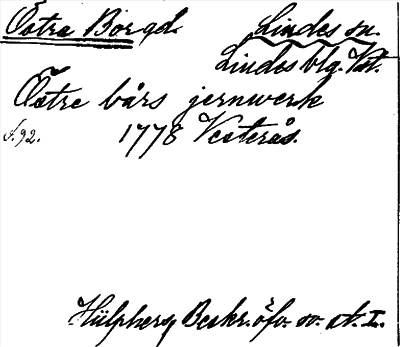 Östra Bor gd. Lindes sn.
Lindes blg. Vstm.
Östre bårs jernwerk
s. 92. 1778 Vesterås.
Hülphers, Beskr. öfv. sv. st. I.